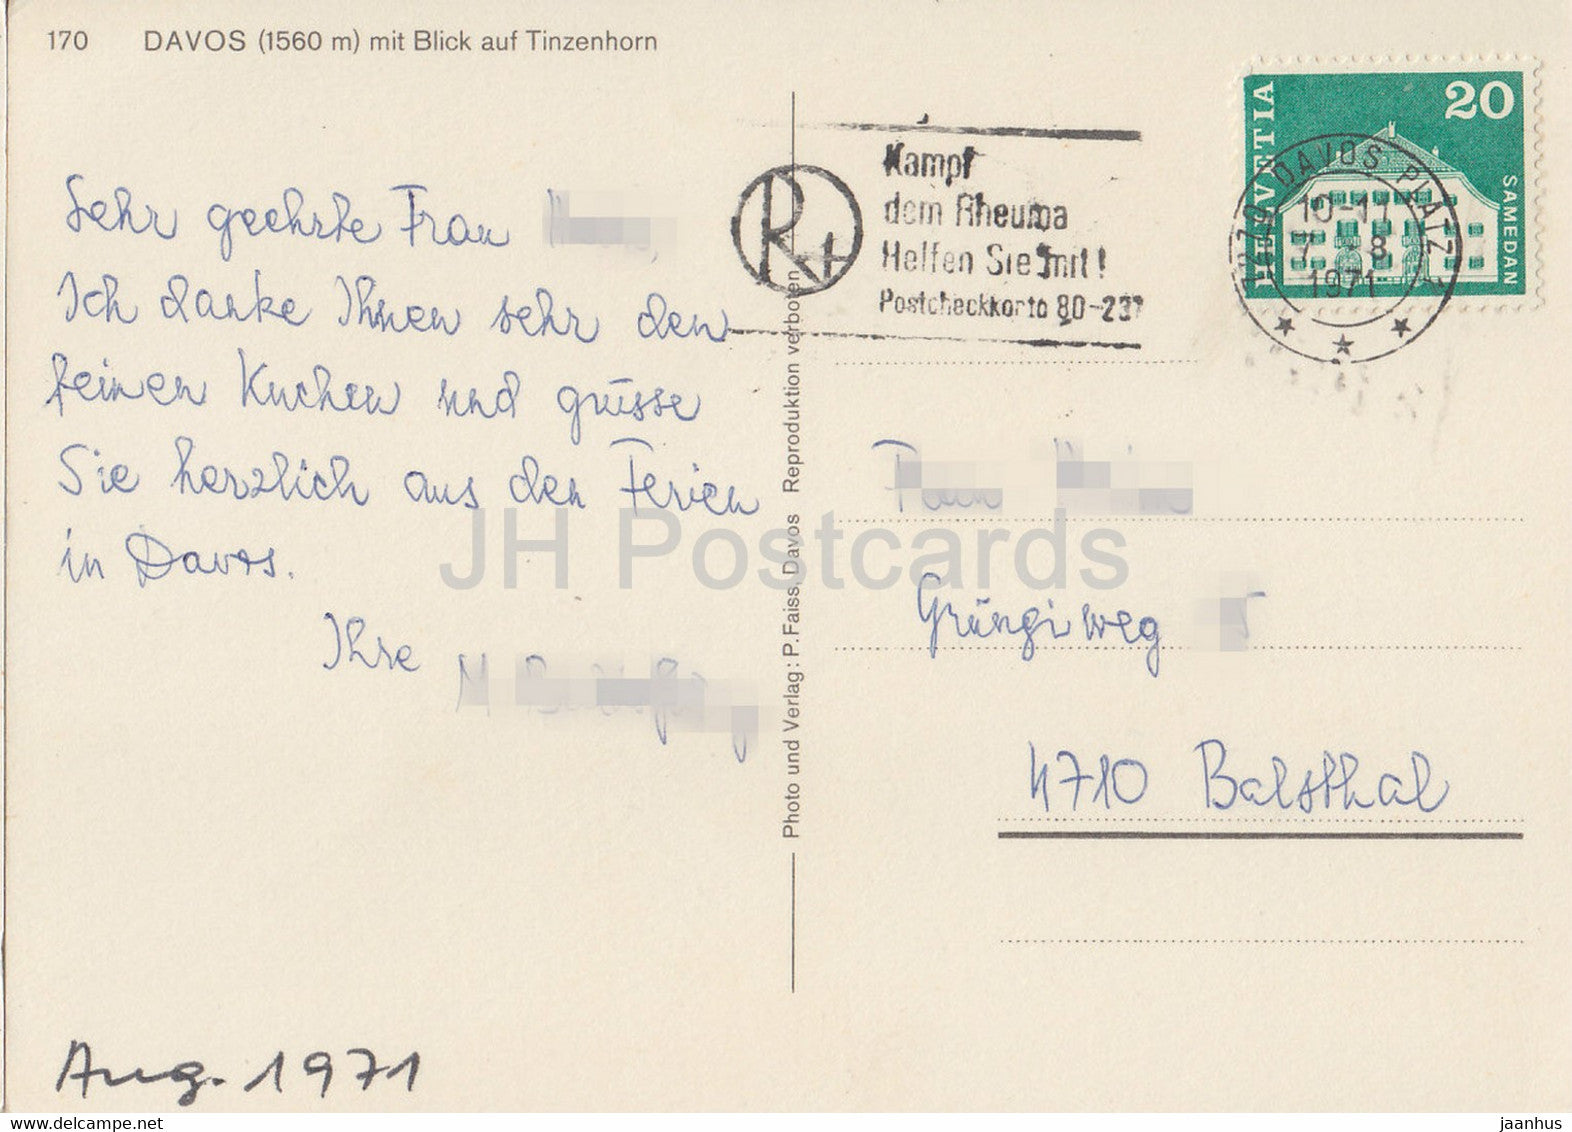 170 DAVOS (1560 m) mit Blick auf Tinzenhorn
Sehr geehrte Frau
Ich danke Ihnen sehr den
feinen Kuchen und grüsse
Sie herzlich aus den Ferien
in Davos.
Ihre
Aug. 1971
Photo und Verlag: P. Faiss, Davos Reproduktion verboten
Kampf
dem Rheuma
Helfen Sie mit!
Postcheckkonto 80-237
HELVETIA
20
SAMEDAN
7270 DAVOS PLATZ 2
10-11
7.-8.
1971
Grüngiweg
4710 Balsthal
JH Postcards
delcampe.net
jaanhus